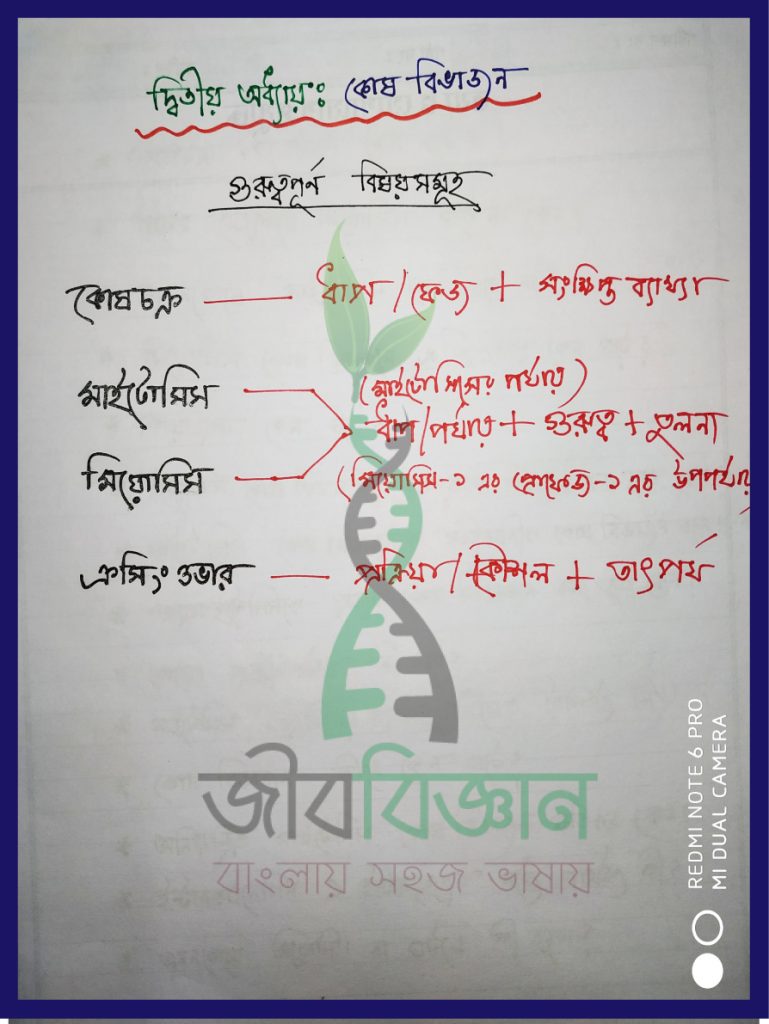 দ্বিতীয় অধ্যায়: কোষ বিভাজন
গুরুত্বপূর্ন বিষয়সমূহ
কোষচক্র — ধাপ/ফেজ + সংক্ষিপ্ত ব্যাখ্যা
(মাইটোসিসের পর্যায়)
মাইটোসিস
ধাপ/পর্যায় + গুরুত্ব + তুলনা
মিয়োসিস
(মিয়োসিস-১ এর প্রোফেজ-১ এর উপপর্যায়
ক্রসিংওভার — প্রক্রিয়া/কৌশল + তাৎপর্য
জীববিজ্ঞান
বাংলায় সহজ ভাষায়
REDMI NOTE 6 PRO
MI DUAL CAMERA